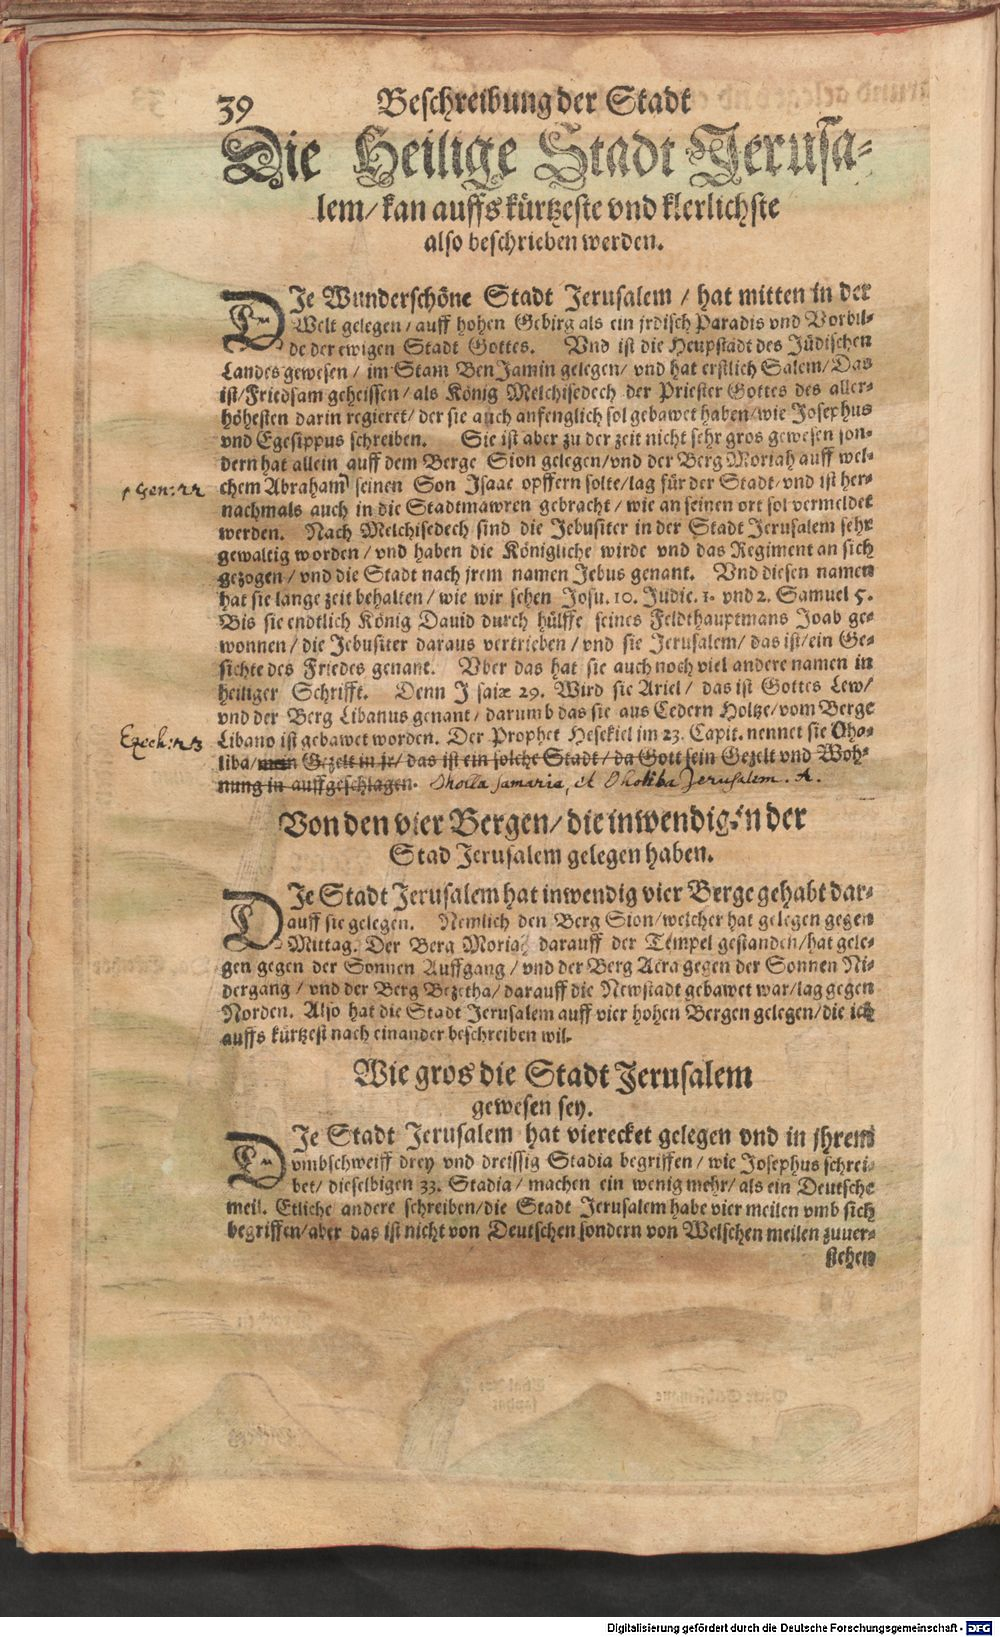 39 Beschreibung der Stadt
Die Heilige Stadt Jerusa-
lem/ kan auffs kürtzeste vnd klerlichste
also beschrieben werden.
DIe Wunderschöne Stadt Jerusalem / hat mitten in der
Welt gelegen / auff hohen Gebirg als ein jrdisch Paradis vnd Vorbil-
de der ewigen Stadt Gottes. Vnd ist die Heupstadt des Jüdischen
Landes gewesen / im Stam BenJamin gelegen / vnd hat erstlich Salem / Das
ist/Friedsam geheissen / als König Melchisedech der Priester Gottes des aller-
höhesten darin regieret/ der sie auch anfenglich sol gebawet haben/wie Josephus
vnd Egesippus schreiben. Sie ist aber zu der zeit nicht sehr gros gewesen son-
dern hat allein auff dem Berge Sion gelegen/vnd der Berg Moriah auff wel-
chem Abraham seinen Son Isaac opffern solte/lag für der Stadt/vnd ist her-
Gen: 22
nachmals auch in die Stadtmawren gebracht / wie an seinen ort sol vermeldet
werden. Nach Melchisedech sind die Jebusiter in der Stadt Jerusalem sehr
gewaltig worden / vnd haben die Königliche wirde vnd das Regiment an sich
gezogen / vnd die Stadt nach jrem namen Jebus genant. Vnd diesen namen
hat sie lange zeit behalten / wie wir sehen Josu. 10. Judic. 1. vnd 2. Samuel 5.
Bis sie endtlich König Dauid durch hülffe seines Feldthauptmans Joab ge-
wonnen / die Jebusiter daraus vertrieben / vnd sie Jerusalem/ das ist/ein Ge-
sichte des Friedes genant. Vber das hat sie auch noch viel andere namen in
heiliger Schrifft. Denn Jsaiæ 29. Wird sie Ariel / das ist Gottes Lew/
vnd der Berg Libanus genant / darumb das sie aus Cedern Holtze/vom Berge
Libano ist gebawet worden. Der Prophet Hesekiel im 23. Capit. nennet sie Oho-
Ezech: 23
liba/ mein Gezelt in jr/ das ist ein solche Stadt / da Gott sein Gezelt vnd Woh-
nung in auffgeschlagen. Oholla Samaria, et Oholiba Jerusalem. A.
Von den vier Bergen/ die inwendig in der
Stad Jerusalem gelegen haben.
DIe Stadt Jerusalem hat inwendig vier Berge gehabt dar-
auff sie gelegen. Nemlich den Berg Sion/welcher hat gelegen gegen
Mittag. Der Berg Moriah darauff der Tempel gestanden/hat gele-
gen gegen der Sonnen Auffgang / vnd der Berg Acra gegen der Sonnen Ni-
dergang / vnd der Berg Bezetha/ darauff die Newstadt gebawet war/lag gegen
Norden. Also hat die Stadt Jerusalem auff vier hohen Bergen gelegen/die ich
auffs kürtzest nach einander beschreiben wil.
Wie gros die Stadt Jerusalem
gewesen sey.
DIe Stadt Jerusalem hat vierecket gelegen vnd in jhrem
vmbschweiff drey vnd dreissig Stadia begriffen / wie Josephus schrei-
bet/ dieselbigen 33. Stadia/ machen ein wenig mehr/ als ein Deutsche
meil. Etliche andere schreiben/die Stadt Jerusalem habe vier meilen vmb sich
begriffen/aber das ist nicht von Deutschen sondern von Welschen meilen zuuer-
stehen
Digitalisierung gefördert durch die Deutsche Forschungsgemeinschaft - DFG